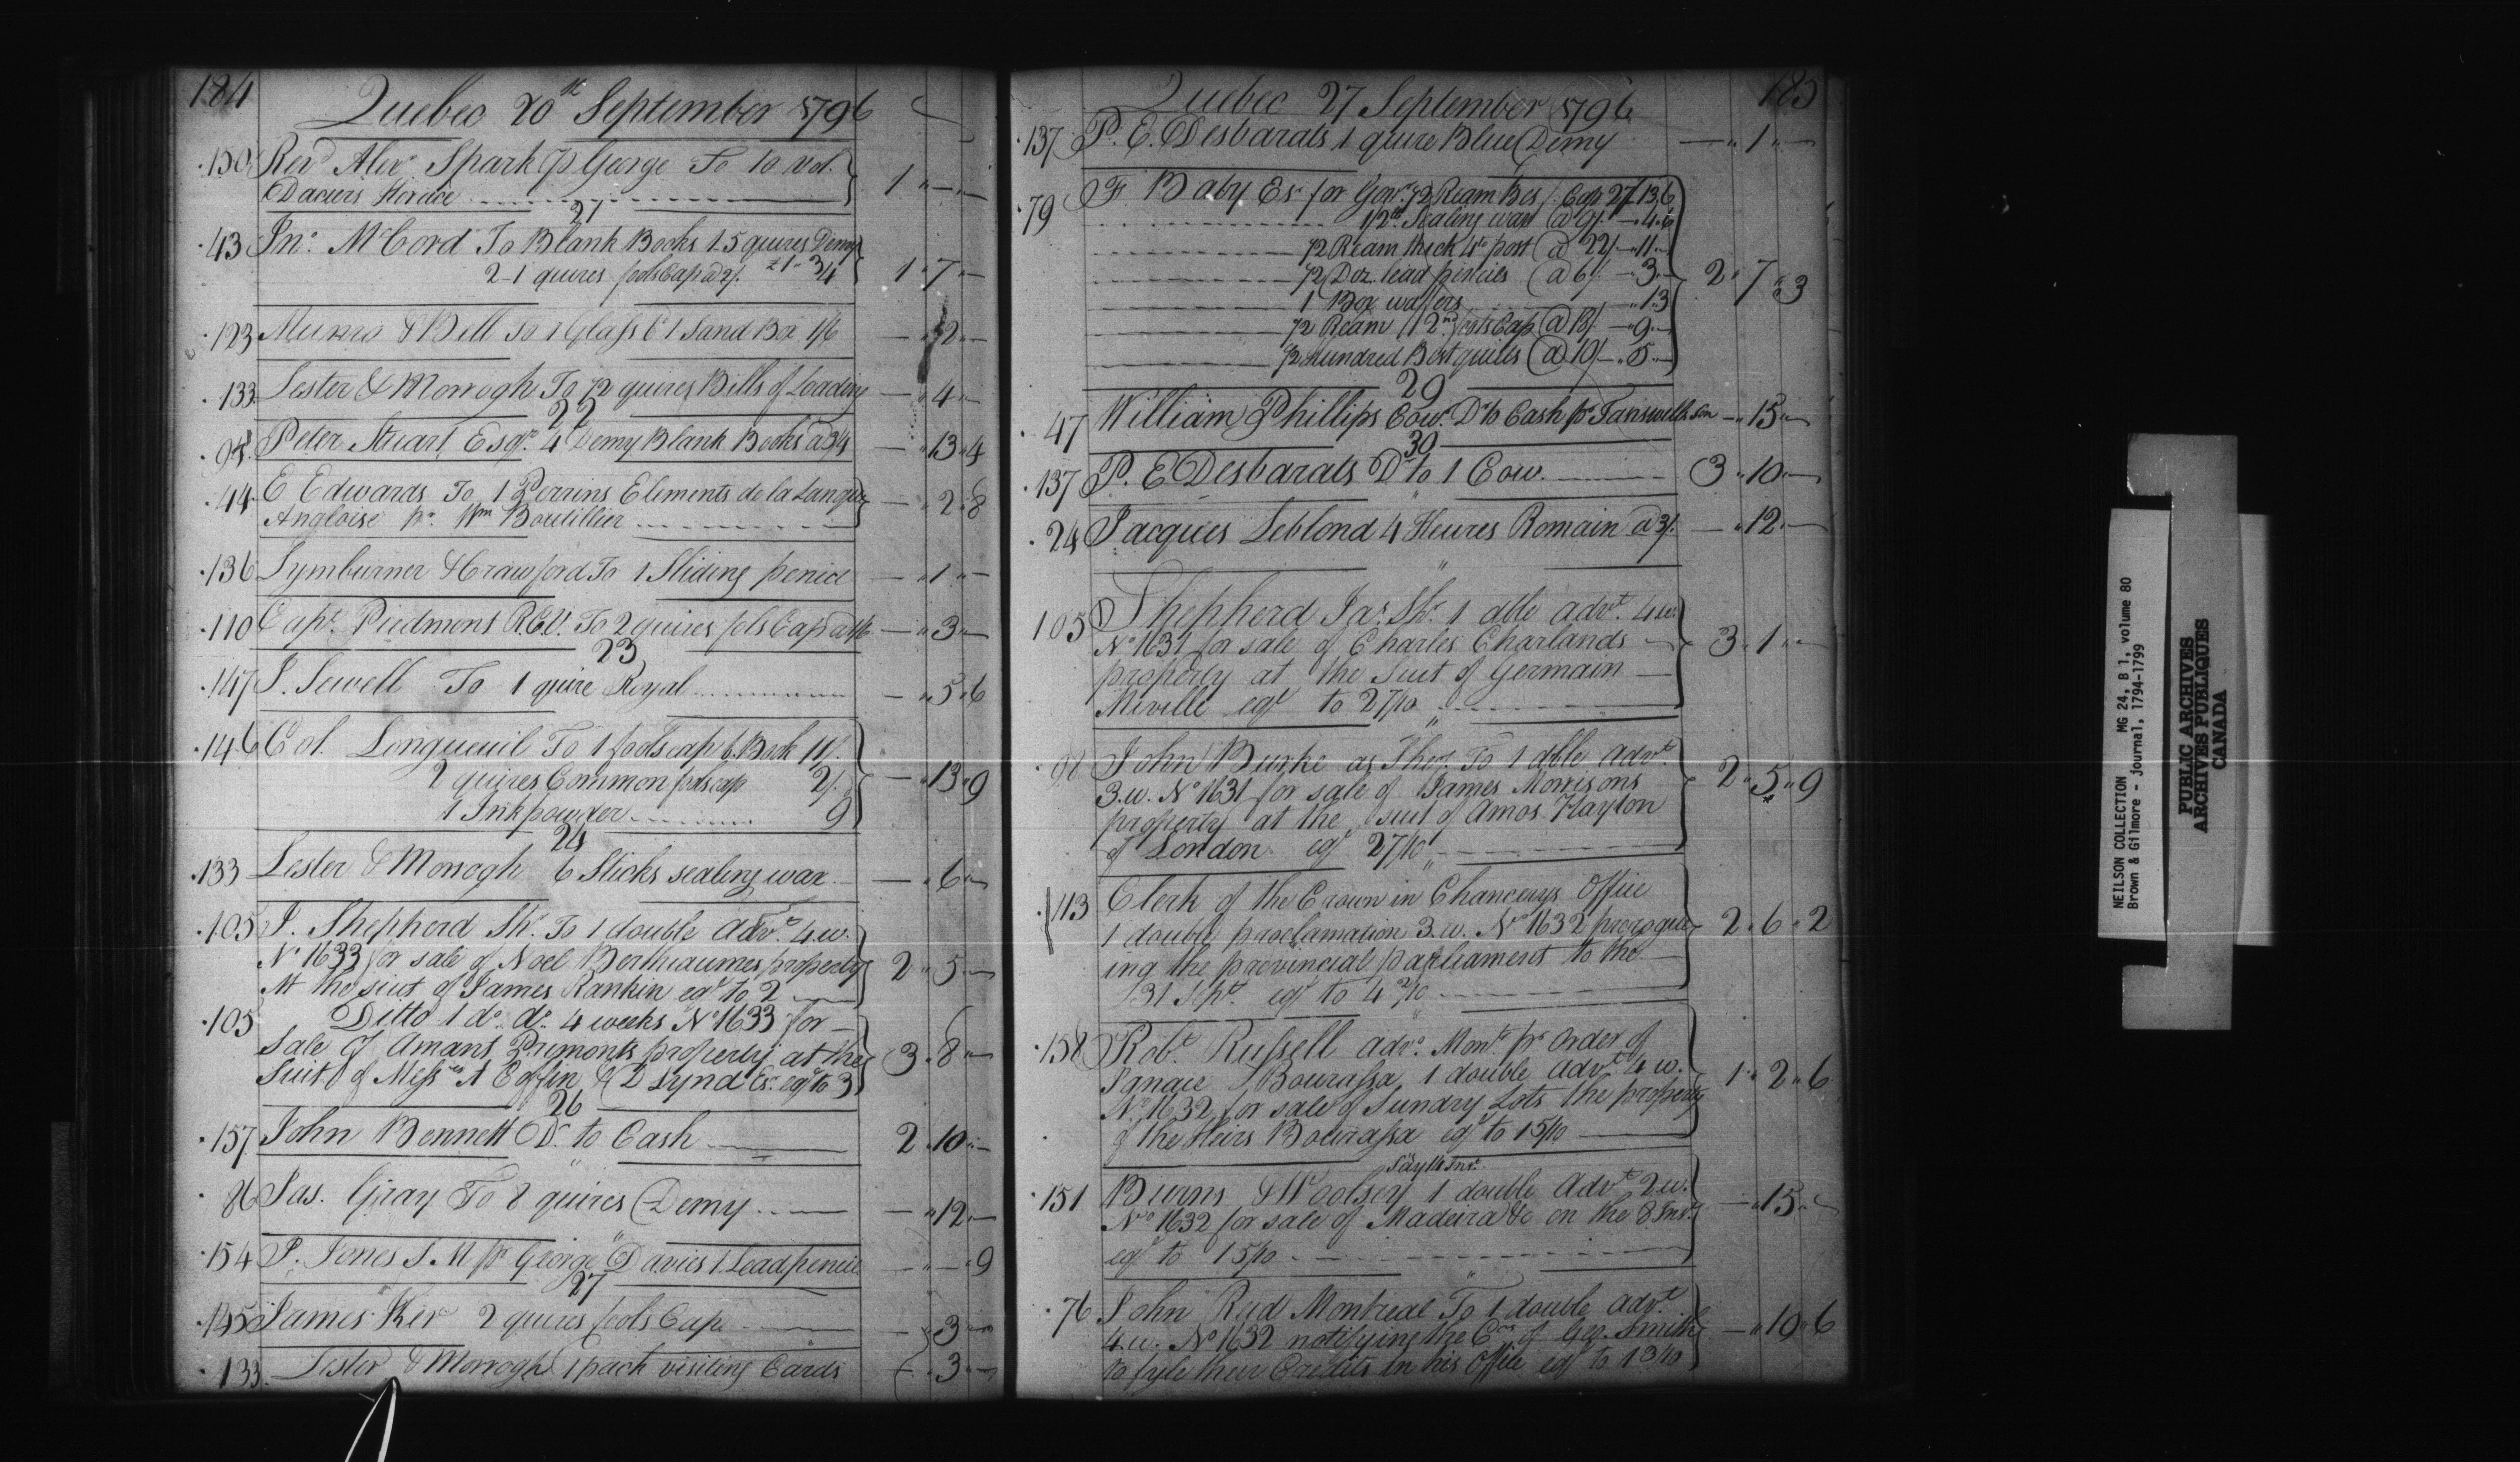 184
Quebec 20th September 1796
150 Revd Alexr Spark p George To 10 vol.
Daciers Horace 1 " — " —
21
43 Jno McCord To Blank Books 1.5 quires Demy
2-1 quires fools Cap @ 2/. 1 " 7 " —
123 Munro & Bell To 1 Glass & 1 Sand Box 1/6 — " 2 " —
133 Lester & Morrogh To 1/2 quires Bills of Loading — " 4 " —
22
94 Peter Stuart Esqr. 4 Demy Blank Books @ 3/4 — " 13 " 4
44 E Edwards To 1 Perrins Elements de la Langue
Angloise pr. Wm Boutillier — " 2 " 8
136 Lymburner & Crawford To 1 Sliding pencil — " 1 " —
110 Capt. Piedmont R.C.V. To 2 quires fols Cap @ 1/6 — " 3 " —
23
147 J. Sewell To 1 quire Royal — " 5 " 6
146 Col. Longueuil To 1 foolscap b. Book 11/.
2 quires Common foolscap 2/. — " 13 " 9
1 Inkpowder 9
24
133 Lester & Morrogh 6 Sticks sealing wax — " 6 " —
105 J. Shepherd Shr. To 1 double advt. 4.w.
No 1633 for sale of Noel Berthiaumes property 2 " 5 " —
At the suit of James Rankin eql to 2
105 Ditto 1 do. do. 4 weeks No 1633 for
Sale of Amant Primonts property at the 3 " 8 " —
Suit of Messrs A Coffin & D Lynd Esr. eql to 3
26
157 John Bennett Dr. to Cash 2 " 10 " —
86 Jas. Gray To 8 quires Demy — " 12 " —
154 P. Jones S.M pr George Davies 1 Lead pencil — " — " 9
27
145 James Ker 2 quires fools Cap — " 3 " —
133 Lester & Morrogh 1 pack visiting Cards — " 3 " —
185
Quebec 27 September 1796
137 P. E. Desbarats 1 quire Blue Demy — " 1 " —
79 F Baby Esr for Govt. 1/2 Ream Bes. Cap 27/. 13.6
1/2 lb Sealing wax @ 9/. — 4.6
1/2 Ream thick 4to post @ 22/ — 11 —
1/2 Doz. lead pencils @ 6/. — 3 — 2 " 7 " 3
1 Box wafers — 1.3
1/2 Ream 2nd fools Cap @ 18/. — 9 —
1/2 Hundred Best quills @ 10/ — 5 —
29
47 William Phillips Cow. Dr to Cash pr Tanswells Son — " 15 " —
30
137 P. E Desbarats Dr to 1 Cow. 3 " 10 " —
24 Jacques Leblond 4 Heures Romain @ 3/. — " 12 " —
105 Shepherd Jas. Shr. 1 dble advt. 4 w.
No 1631 for sale of Charles Charlands
property at the Suit of Germain 3 " 1 " —
Miville eql to 27/10
98 John Burke as Sher. To 1 dble advt.
3.w. No 1631 for sale of James Morrisons 2 " 5 " 9
property at the suit of Amos Hayton
of London eql 27/10
113 Clerk of the Crown in Chancerys Office
1 double proclamation 3.w. No 1632 prorogue- 2 " 6 " 2
ing the provincial parliament to the
31 Sept. eql to 4 2/10
158 Robt. Russell advo. Mont. pr Order of
Ignace Bourassa 1 double advt. 4 w. 1 " 2 " 6
No 1632 for sale of Sundry Lots the property
of the Heirs Bourassa eql to 15/10
151 Burns & Woolsey 1 double Advt. 2 w.
No 1632 for sale of Madeira &c on the 8 Inst. — " 15 " —
eql to 15/10
76 John Reid Montreal To 1 double advt.
4.w. No 1632 notifying the Crs of Geo. Smith — " 19 " 6
to fyle their Credits in his Office eql to 13/10
NEILSON COLLECTION MG 24, B 1, volume 80
Brown & Gilmore - journal, 1794-1799
PUBLIC ARCHIVES
ARCHIVES PUBLIQUES
CANADA